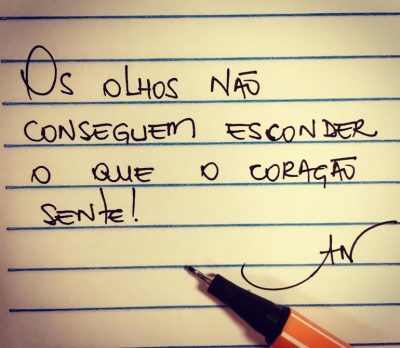 Os OLHOS NÃO
CONSEGUEM ESCONDER
O QUE O CORAÇÃO
SENTE!
AN